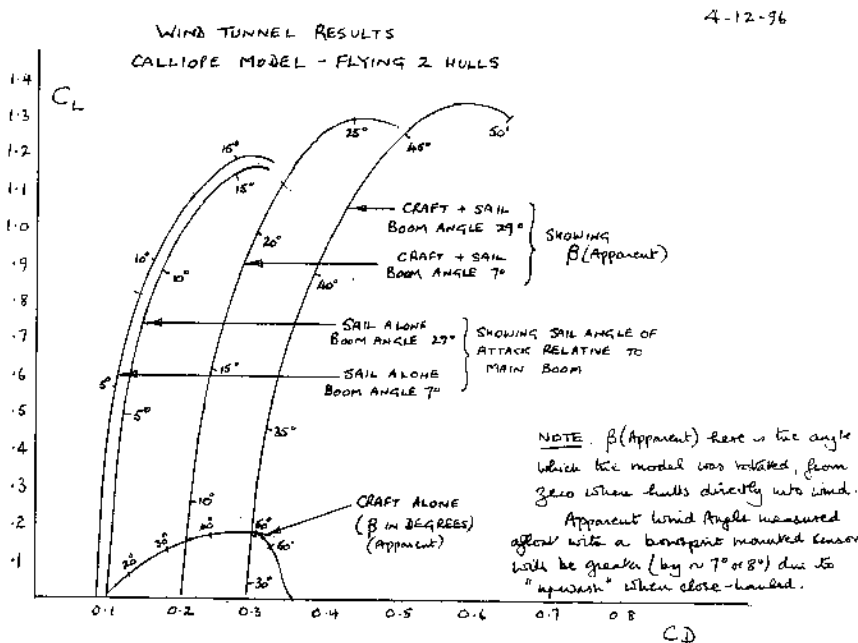 4-12-96
WIND TUNNEL RESULTS
CALLIOPE MODEL - FLYING 2 HULLS
CL
1.4
1.3
1.2
1.1
1.0
.9
.8
.7
.6
.5
.4
.3
.2
.1
15°
15°
10°
10°
5°
5°
25°
20°
15°
10°
50°
45°
40°
35°
30°
20°
30°
40°
60°
CRAFT + SAIL
BOOM ANGLE 29°
CRAFT + SAIL
BOOM ANGLE 7°
SHOWING
β(Apparent)
SAIL ALONE
BOOM ANGLE 29°
SAIL ALONE
BOOM ANGLE 7°
SHOWING SAIL ANGLE OF
ATTACK RELATIVE TO
MAIN BOOM
CRAFT ALONE
(β IN DEGREES)
(Apparent)
NOTE. β(Apparent) here is the angle
which the model was rotated, from
zero where hulls directly into wind.
Apparent Wind Angle measured
afloat with a bowsprit mounted sensor
will be greater (by ~ 7° or 8°) due to
"upwash" when close-hauled.
0.1
0.2
0.3
0.4
0.5
0.6
0.7
0.8
CD